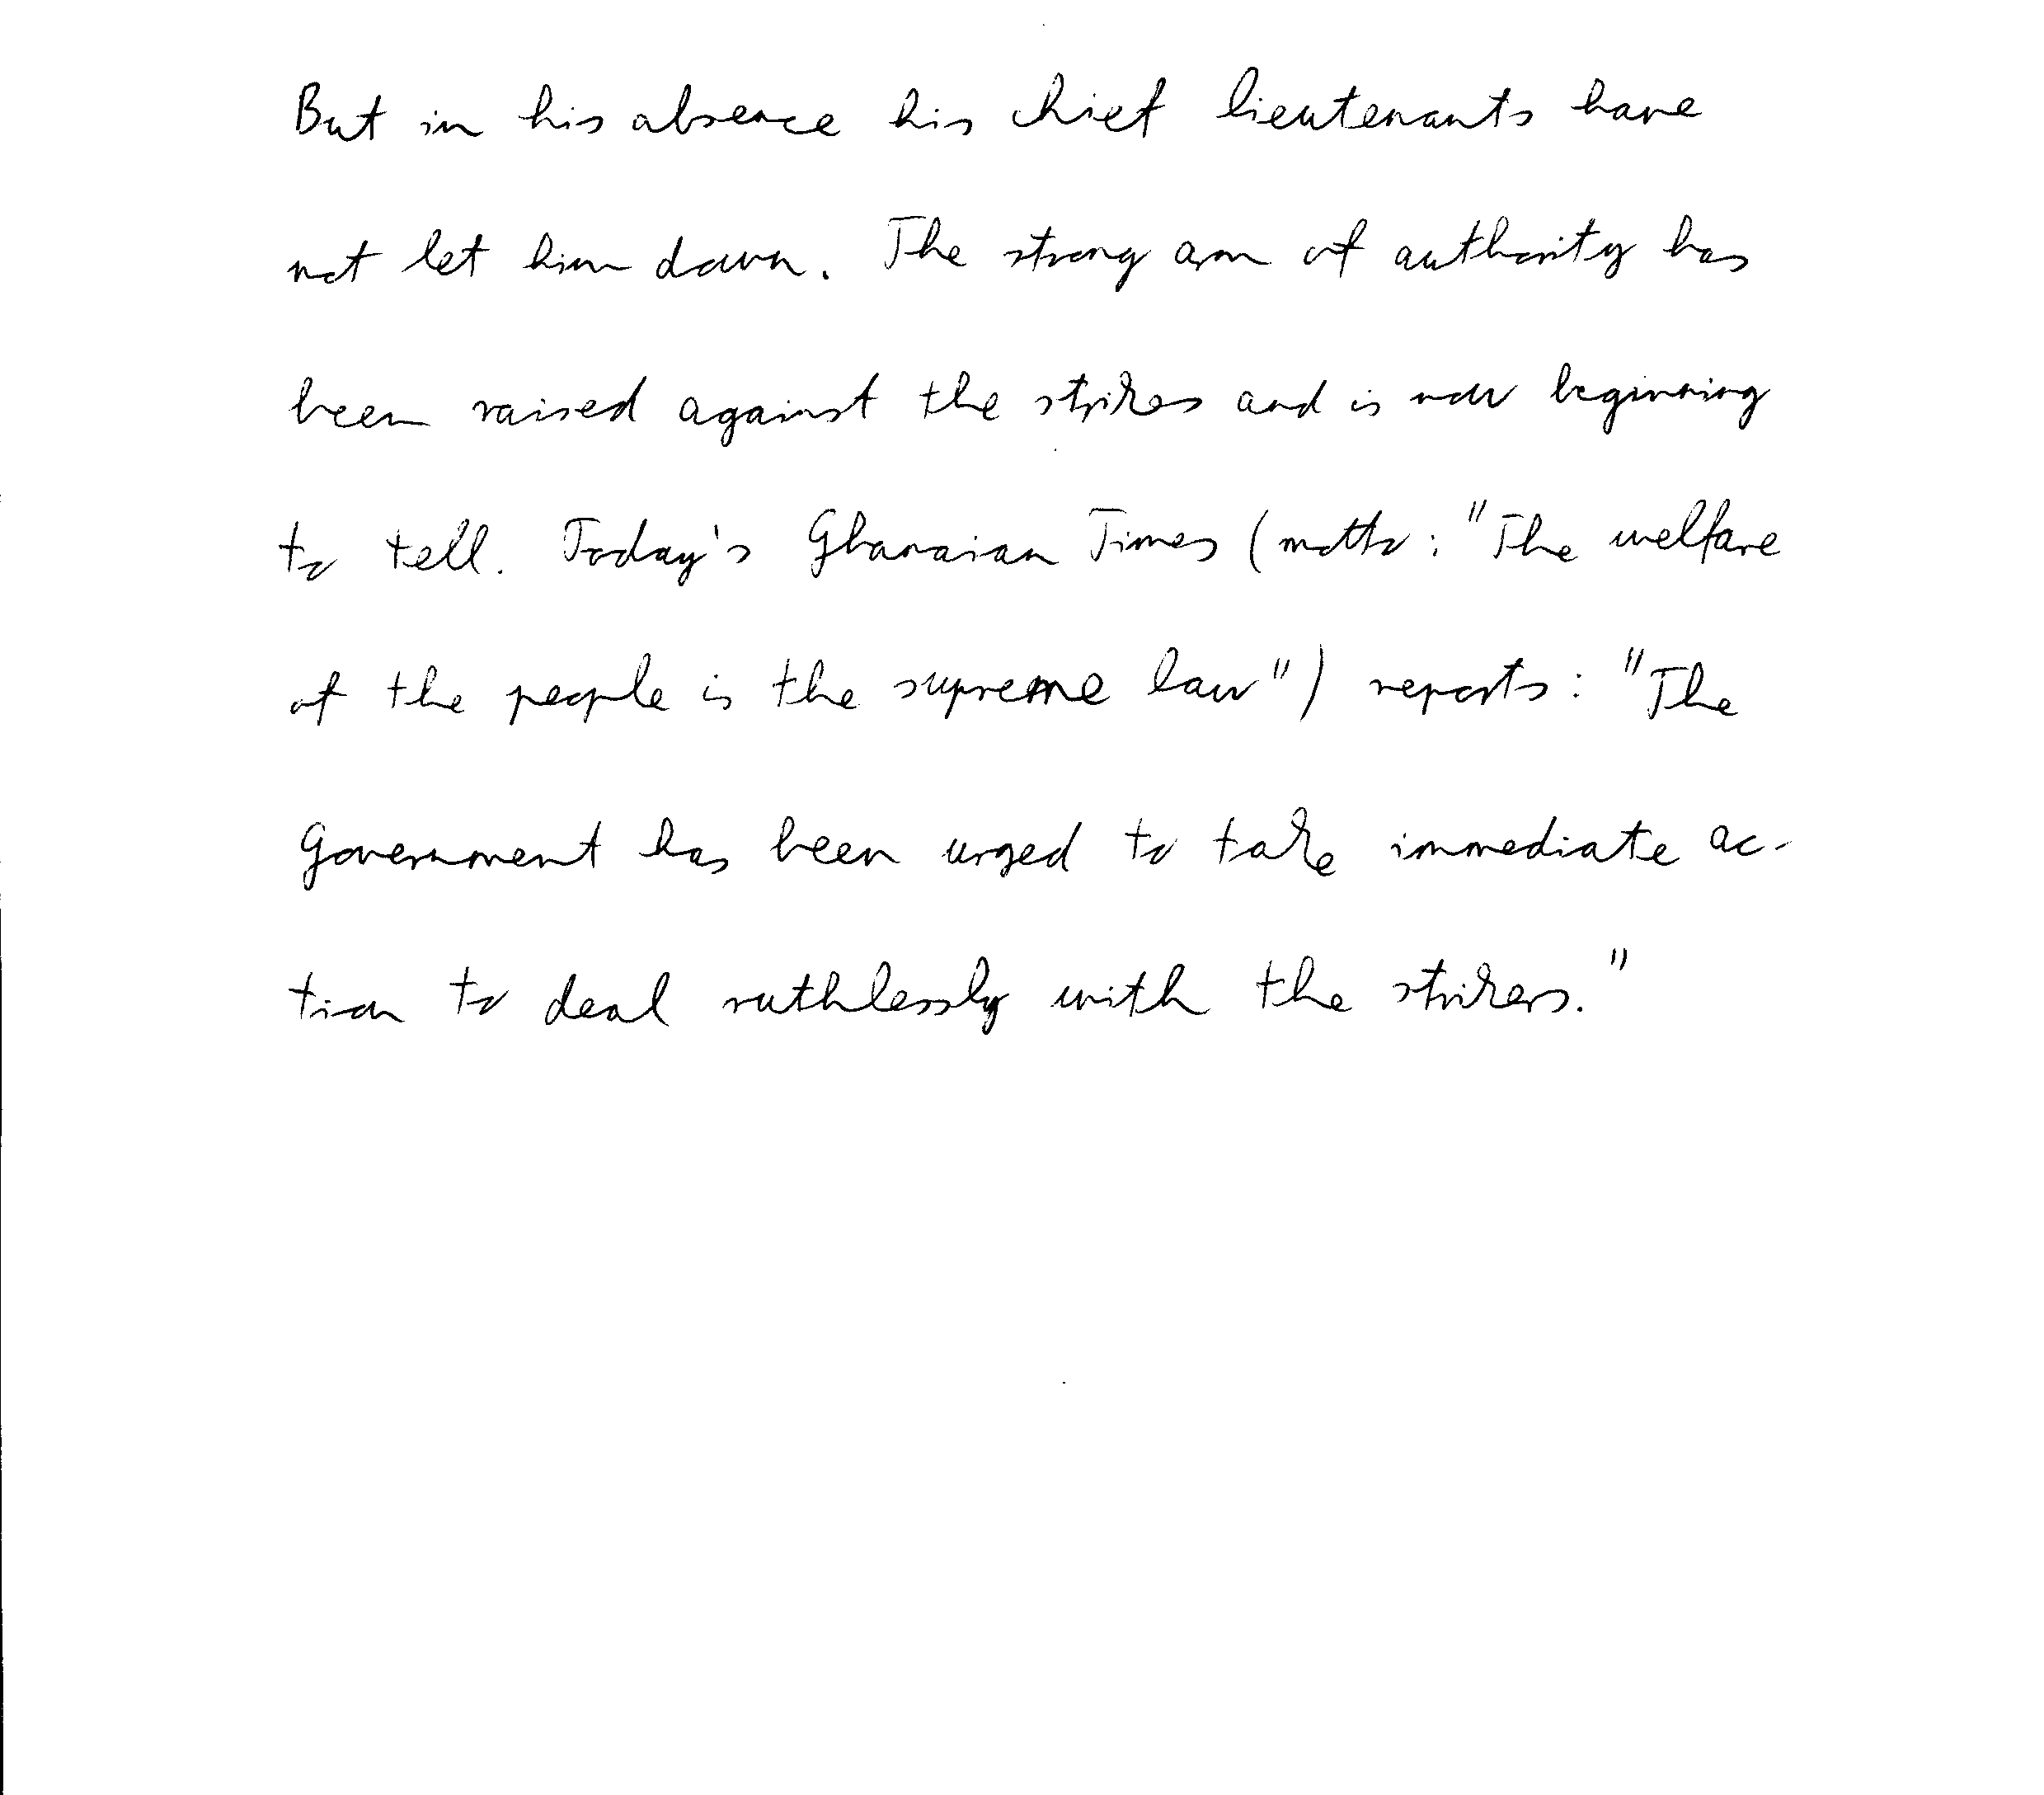 But in his absence his chief lieutenants have
not let him down. The strong arm of authority has
been raised against the strikes and is now beginning
to tell. Today's Ghanaian Times (motto: "The welfare
of the people is the supreme law") reports: "The
Government has been urged to take immediate ac-
tion to deal ruthlessly with the strikers."